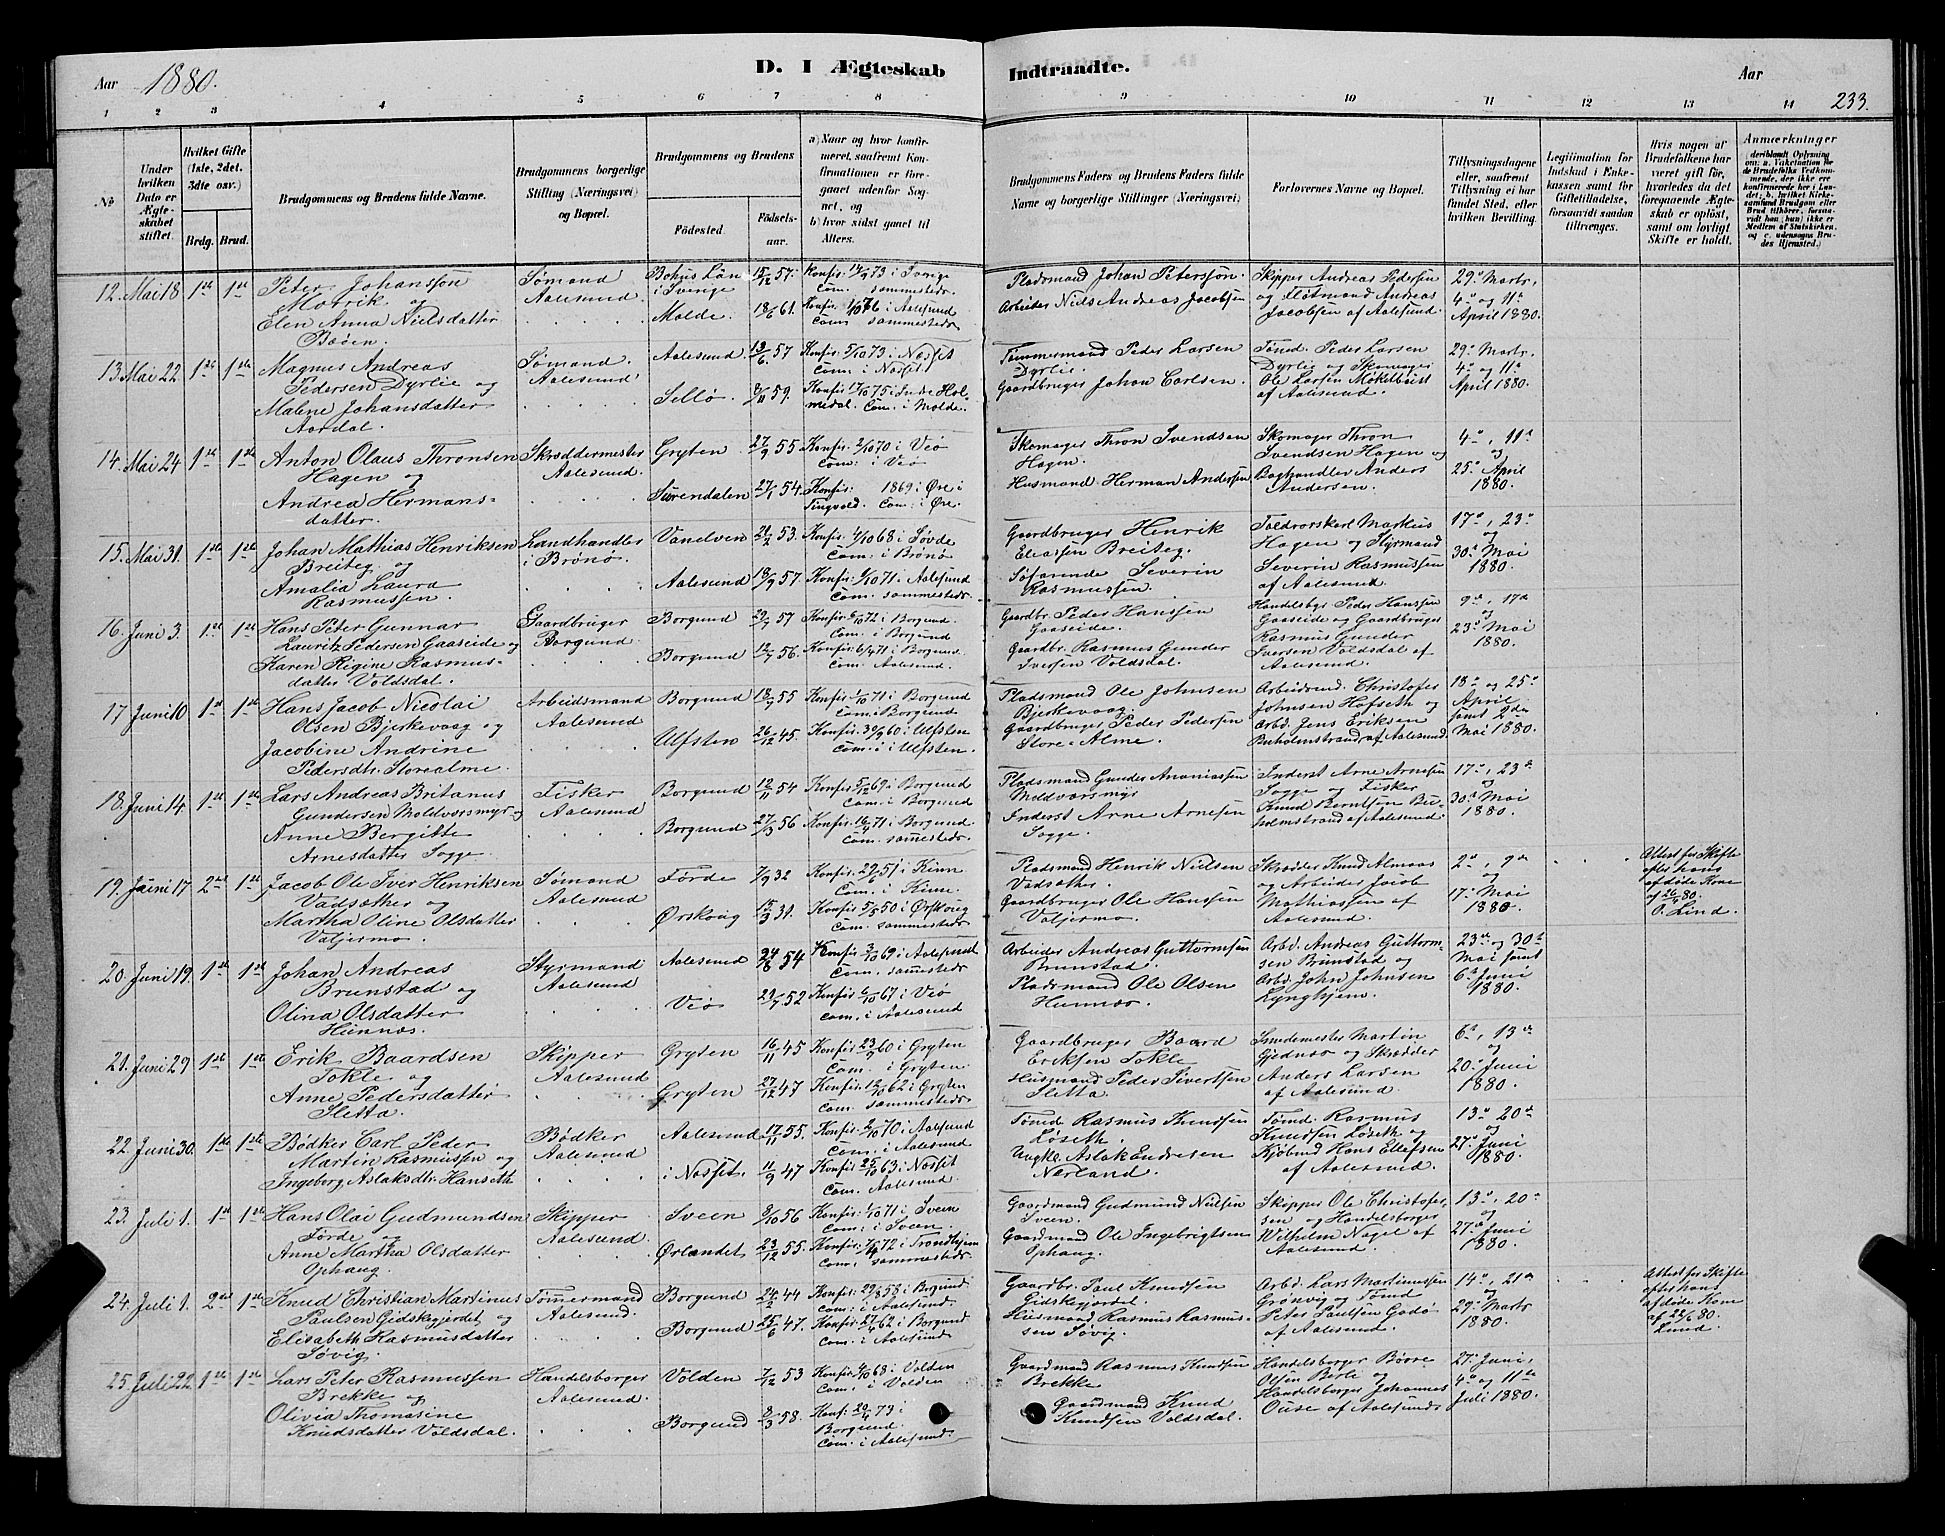 Aar 1880.
D. I Ægteskab
Indtraadte.
Aar
233.
1 2 3 4 5 6 7 8 9 10 11 12 13 14
No
Under hvilken Dato er Ægteskabet stiftet.
Hvilket Gifte (1ste, 2det, 3dte osv.)
Brdg. Brud.
Brudgommens og Brudens fulde Navne.
Brudgommens borgerlige Stilling (Næringsvei) og Bopæl.
Brudgommens og Brudens
Fødested.
Fødselsaar.
a) Naar og hvor konfirmeret, saafremt Konfirmationen er foregaaet udenfor Sognet, og
b) hvor sidst gaaet til Alters.
Brudgommens Faders og Brudens Faders fulde Navne og borgerlige Stillinger (Næringsvei)
Forlovernes Navne og Bopæl.
Tillysningsdagene eller, saafremt Tillysning ei har fundet Sted, efter hvilken Bevilling.
Legitimation for Indskud i Enkekassen samt for Giftetilladelse, forsaavidt saadan tiltrænges.
Hvis nogen af Brudefolkene har været gift før, hvorledes da det foregaaende Ægteskab er opløst, samt om lovligt Skifte er holdt.
Anmærkninger
12. Mai 18 1ste 1ste
Peter Johansson
Motrik og
Elen Anna Nielsdatter
Bøen.
Sømand
Aalesund.
Bohus Län
i Sverige
15/12 57.
Molde. 18/6 61.
Konfir. 14/9 73 i Sverige
Com. sammesteds
Konfir. 1/10 76 i Aalesund
Com. sammesteds
Pladsmand Johan Petersson.
Arbeider Niels Andreas Jacobsen
Skipper Andreas Pedersen
og Fløtmand Andreas
Jacobsen af Aalesund.
29de Marts,
4de og 11te
April 1880.
13. Mai 22. 1ste 1ste
Magnus Andreas
Pedersen Dyrlie og
Malene Johansdatter
Aardal.
Sømand.
Aalesund.
Aalesund. 13/6 57
Sellø. 59.
Konfir. 5/10 73 i Nesset
Com. i Nesset.
Konfir. 17/10 75 i Indre Holmedal. Com. i Molde.
Tømmermand Peder Larsen
Dyrlie.
Gaardbruger Johan Carlsen.
Tømd. Peder Larsen
Dyrlie og Skomager
Ole Larsen Møkelbust
af Aalesund.
29de Marts.
4de og 11te
April 1880.
14. Mai 24 1ste 1ste
Anton Olaus Thronsen
Hagen og
Andrea Hermansdatter.
Skræddermester
Aalesund.
Gryten 27/9 55
Surendalen 27/1 54.
Konfir. 2/10 70 i Veø
Com: i Veø
Konfir. 1869 i Øre i
Tingvold. Com: i Øre.
Skomager Thron Svendsen
Hagen.
Husmand Herman Andersen
Skomager Thron
Svendsen Hagen og
Boghandler Anders
Andersen.
4de, 11te
og
25de April
1880.
15. Mai 31. 1ste 1ste
Johan Mathias Henriksen
Breiteg og
Amalia Laura
Rasmussen.
Landhandler
i Brønø
Vanelven 21/2 53.
Aalesund 18/9 57.
Konfir. 1/10 68 i Søvde
Com: i Brønø
Konfir. 1/10 71 i Aalesund
Com. sammesteds
Gaardbruger Henrik
Eliassen Breiteg.
Søfarende Severin
Rasmussen.
Toldvorskerl Markus
Hagen og Styrmand
Severin Rasmussen
af Aalesund.
17de, 23de
og
30te Mai
1880.
16. Juni 3. 1ste 1ste
Hans Peter Gunnar
Lauritz Pedersen Gaaseide og
Karen Regine Rasmusdatter Voldsdal.
Gaardbruger
Borgund
Borgund 29/7 57
Borgund 12/7 56.
Konfir. 6/10 72 i Borgund.
Com. i Borgund
Konfir. 6/4 71 i Borgund
Com. Aalesund.
Gaardbr. Peder Hanssen
Gaaseide.
Gaardbr. Rasmus Gunder
Iversen Voldsdal.
Handelsbgr Peder Hanssen
Gaaseide og Gaardbruger
Rasmus Gunder
Iversen Voldsdal af
Aalesund.
9de, 17de
og
23de Mai
1880.
17 Juni 10. 1ste 1ste
Hans Jacob Nicolai
Olsen Bjerkevaag og
Jacobine Andrine
Pedersdtr. Storealme.
Arbeidsmand
Aalesund
Borgund 18/9 55
Ulfsten 26/12 45.
Konfir. 1/10 71 i Borgund
Com. i Borgund
Konfir. 30/9 60 i Ulfsten
Com. i Ulfsten.
Pladsmand Ole Johnsen
Bjerkevaag.
Gaardbruger Peder Pedersen
Store-Alme.
Arbeidsmd. Christofer
Johnsen Hofseth og
Arbd. Jens Eriksen
Buholmstrand af Aalesund.
18de og 25de
April
samt 2den
Mai 1880.
18. Juni 14. 1ste 1ste
Lars Andreas Britanus
Gundersen Moldværsmyr og
Anne Bergitte
Arnesdatter Sogge.
Fisker
Aalesund
Borgund 12/11 54
Borgund 27/3 56
Konfir. 5/12 69 i Borgund
Com. i Borgund
Konfir. 16/4 71 i Borgund.
Com: sammesteds.
Pladsmand Gunder Ananiassen
Moldværsmyr
Inderst Arne Arnesen
Sogge.
Inderst Arne Arnesen
Sogge og Fisker
Knud Berntsen Buholmstrand af Aalesund.
17de, 23de
og
30te Mai
1880.
19. Juni 17. 2det 1ste
Jacob Ole Iver Henriksen
Vadsæther og
Martha Oline Olsdatter
Valjermo.
Sømand
Aalesund
Førde 7/9 32
Ørskoug 15/3 31.
Konfir. 29/6 51 i Kinn
Com. i Kinn.
Konfir. 5/5 50 i Ørskoug
Com. sammesteds.
Pladsmand Henrik Nielsen
Vadsæther.
Gaardbruger Ole Hansen
Valjermo.
Skrædder Knud Almaas
og Arbeider Jacob
Mathiassen af
Aalesund.
2den, 9de
og
17de Mai
1880.
Attest for Skifte
efter hans
afdøde Kone
af 80.
O. Lind.
20. Juni 19. 1ste 1ste
Johan Andreas
Brunstad og
Olina Olsdatter
Hunnæs.
Styrmand
Aalesund
Aalesund 24/8 54
Veø 23/7 52
Konfir. 3/10 69 i Aalesund
Com. sammesteds
Konfir. 6/10 67 i Veø
Com. i Aalesund
Arbeider Andreas Guttormsen
Brunstad.
Pladsmand Ole Olsen
Hunnæs.
Arbd. Andreas Guttormsen Brunstad og
Arbd. John Johnsen
Lynghjem.
23de og 30te
Mai samt
6te Juni
1880.
21. Juni 29 1ste 1ste
Erik Baardsen
Tokle og
Anne Pedersdatter
Sletta.
Skipper
Aalesund
Gryten 16/11 45
Gryten 27/12 47
Konfir. 23/9 60 i Gryten
Com. i Gryten.
Konfir. 12/10 62 i Gryten
Com. sammesteds.
Gaardbruger Baard
Eriksen Tokle
Husmand Peder Sivertsen
Sletta.
Smedemester Martin
Gjednæs og Skrædder
Anders Larsen
af Aalesund.
6te, 13de
og
20de Juni
1880.
22. Juni 30. 1ste 1ste
Bødker Carl Peder
Martin Rasmussen og
Ingeborg Aslaksdtr. Hanseth
Bødker
Aalesund
Aalesund 17/11 55.
i Nesset. 11/9 47
Konfir. 2/10 70 i Aalesund
Com. i Aalesund
Konfir. 25/10 63 i Nesset
Com. Aalesund
Tømd Rasmus Knudsen
Løseth.
Ungkl. Aslak Endresen
Nærland.
Tømd. Rasmus
Knudsen Løseth og
Kjøbmd Hans Ellefsen
af Aalesund.
13de 20de
og
27de Juni
1880.
23. Juli 1. 1ste 1ste
Hans Olai Gudmundsen
Førde og
Anne Martha Olsdatter
Ophaug.
Skipper
Aalesund.
Sveen 3/10 56
Ørlandet 23/12 55.
Konfir. 1/10 71 i Sveen
Com. i Sveen.
Konfir. 72 i Trondhjem
Com. sammesteds.
Gaardmand Gudmund Nielsen
Sveen.
Gaardmand Ole Ingebrigtsen
Ophaug.
Skipper Ole Christofersen og Handelsborger
Wilhelm Nagel af
Aalesund.
13de, 20de
og
27de Juni
1880.
24. Juli 1. 2det 1ste
Knud Christian Martinus
Paulsen Gidskegjerdet og
Elisabeth Rasmusdatter
Søvig.
Tømmermand
Aalesund.
Borgund 24/2 44
Borgund 25/6 47.
Konfir. 29/8 58 i Borgund
Com: i Aalesund.
Konfir. 27/4 62 i Borgund
Com. i Aalesund.
Gaardbr. Paul Knudsen
Gidskegjerdet.
Husmand Rasmus Rasmussen Søvig.
Arbd. Lars Martinussen
Grønvig og Tømd
Peter Paulsen Godø
af Aalesund.
14de, 21de
og
29de Marts
1880.
Attest for Skifte
efter hans
afdøde Kone
af 22/6 80.
Lund.
25. Juli 22 1ste 1ste
Lars Peter Rasmussen
Brekke og
Olivia Thomasine
Knudsdatter Voldsdal.
Handelsborger
Aalesund.
Volden 7/12 53
Borgund 8/3 58.
Konfir. 4/10 68 i Volden
Com: i Volden
Konf: 20/4 73 i
Borgund.
Com. i Aalesund.
Gaardmand Rasmus Knudsen
Brekke
Gaardmand Knud
Knudsen Voldsdal.
Handelsborger Børre
Olsen Birle og
Handelsborger Johannes
Ouse af Aalesund.
27de Juni,
4de og 11te
Juli 1880.